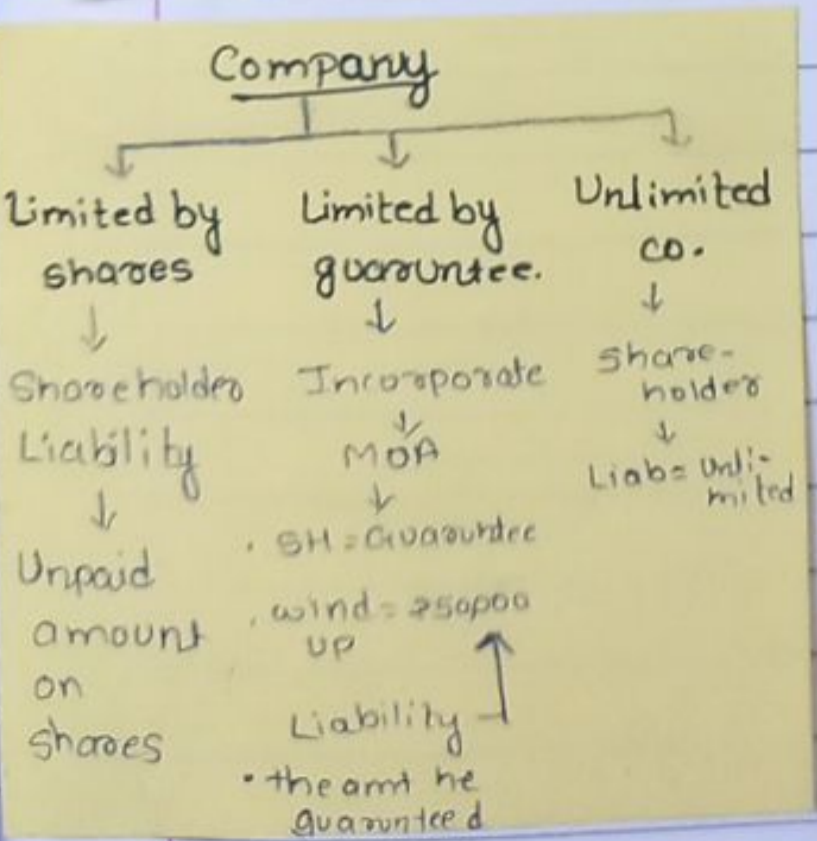 Company
Limited by
shares
Shareholder
Liability
Unpaid
amount
on
shares
Limited by
guaruntee.
Incorporate
MOA
. SH = Guaruntee
. wind = ₹50,000
up
Liability
• the amt he
guarunteed
Unlimited
co.
Share-
holder
Liab = Unli-
mited